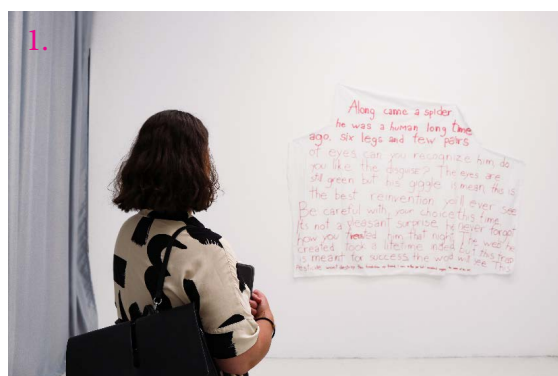 1.
Along came a spider
he was a human long time
ago, six legs and few pairs
of eyes can you recognize him do
you like the disguise? The eyes are
still green but his giggle is mean this is
the best reinvention you'll ever see
Be careful with your choice this time
its not a pleasant surprise he never forgot
how you treated him that night he was
created took a lifetime indeed this
is meant for success the world will see This